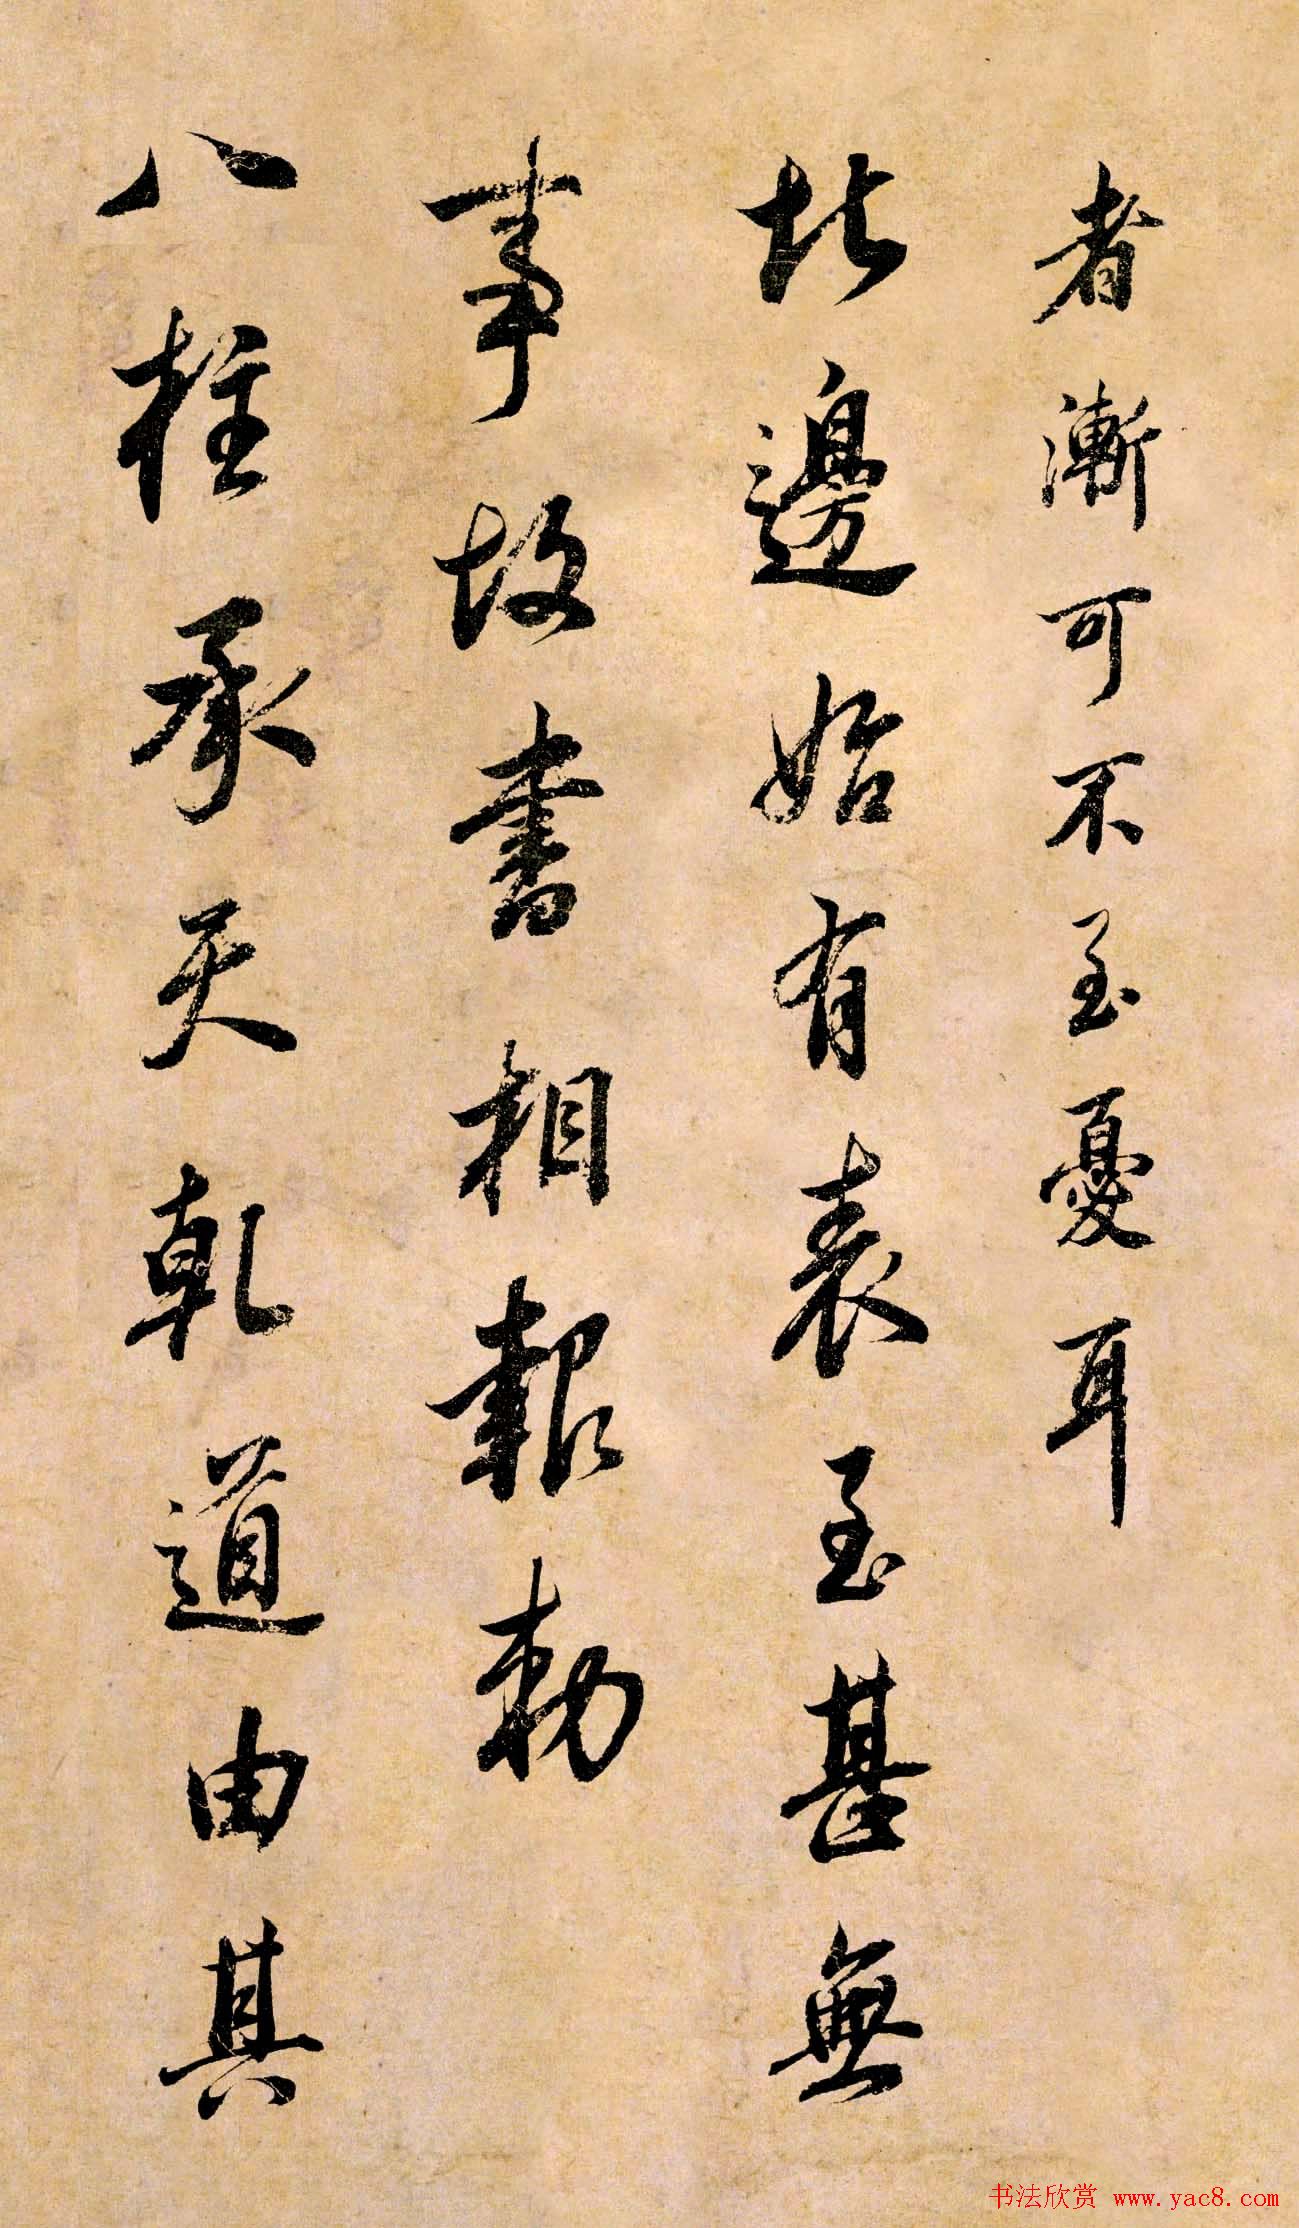 者漸可不至憂耳
北邊始有表至甚無
事故書相報勅
八柱承天乾道由其
书法欣赏 www.yac8.com